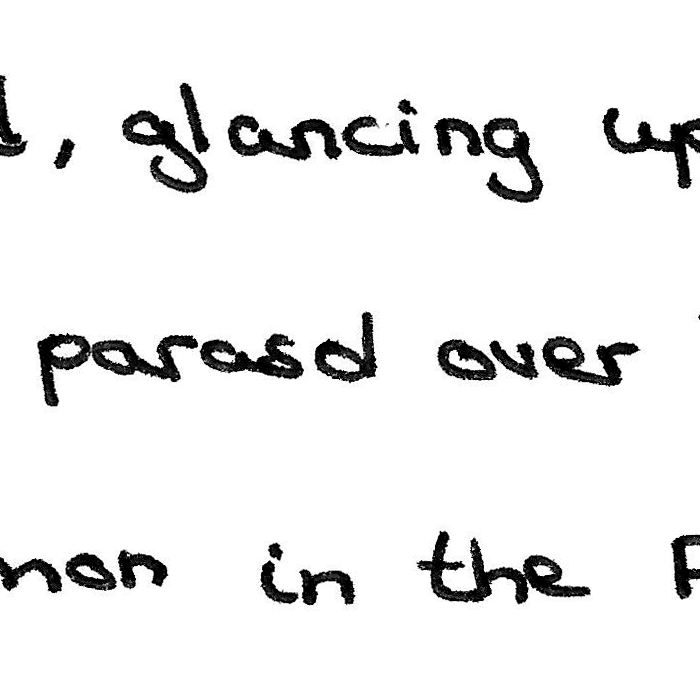 , glancing up
parasol over
in the